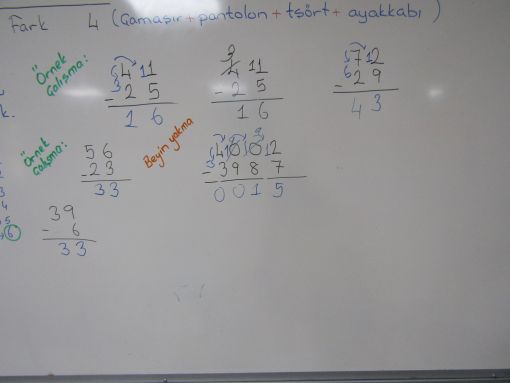 Fark 4 (Çamaşır + pantolon + tşört + ayakkabı)
Örnek Çalışma:
41
- 25
16
3
4 11
- 25
16
712
- 29
43
Örnek Çalışma:
56
- 23
33
Beyin yakma
4002
- 3987
0015
39
- 6
33
k.
3
4
5
6